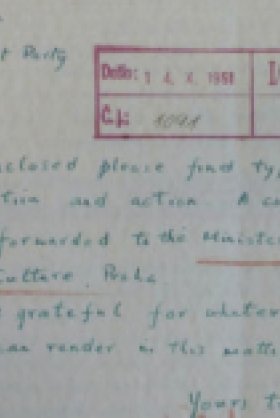 t Party
Došlo: 14. 4. 1951
Č. j.: 1091
nclosed please find ty
tion and action. A co
forwarded to the Minister
Culture, Praha.
grateful for whatever
can render in this matte
Yours t